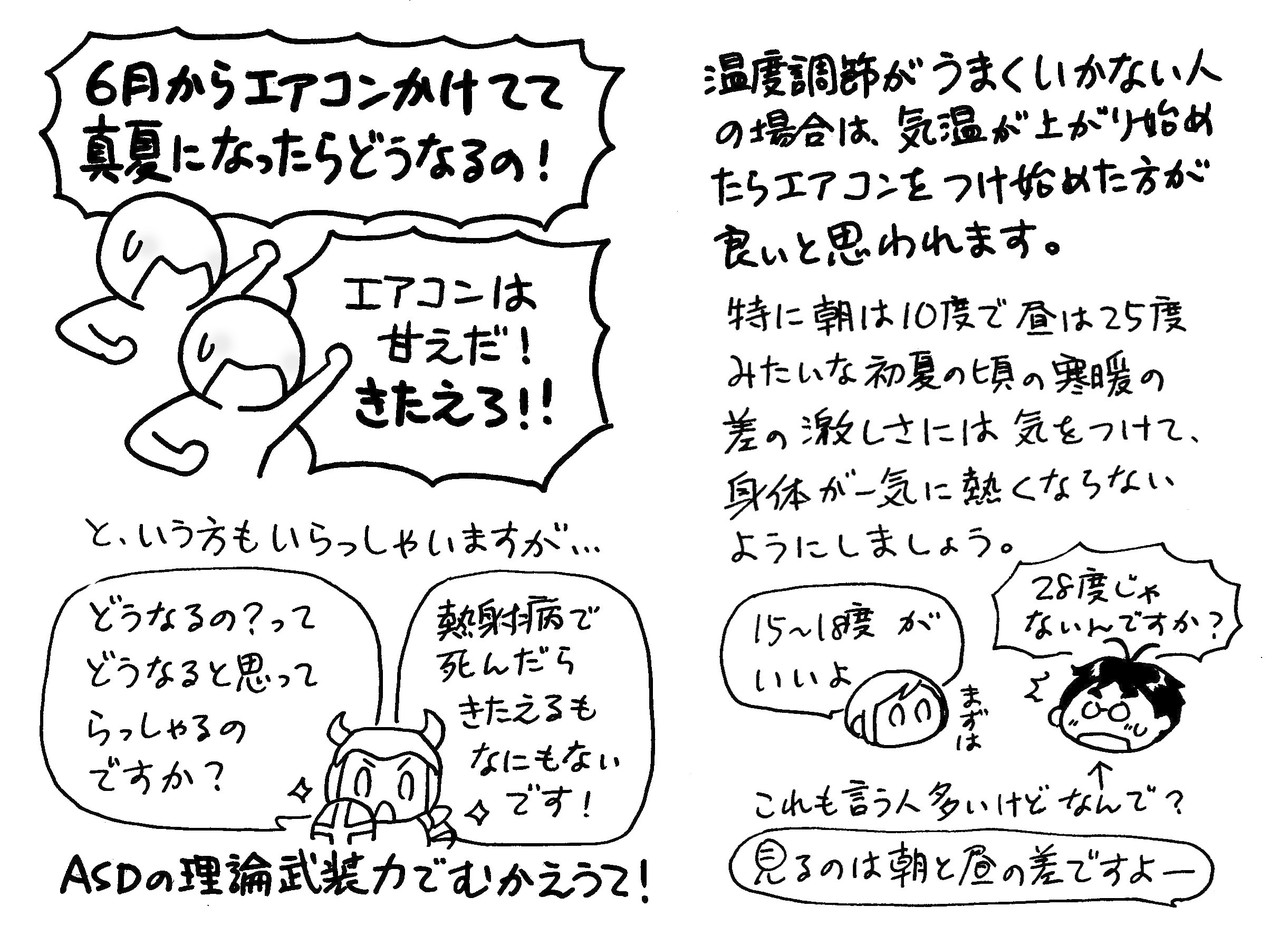 6月からエアコンかけてて
真夏になったらどうなるの！
エアコンは
甘えだ！
きたえろ！！
と、いう方もいらっしゃいますが…
どうなるの？って
どうなると思って
らっしゃるの
ですか？
熱射病で
死んだら
きたえるも
なにもない
です！
ASDの理論武装力でむかえうて！
温度調節がうまくいかない人
の場合は、気温が上がり始め
たらエアコンをつけ始めた方が
良いと思われます。
特に朝は10度で昼は25度
みたいな初夏の頃の寒暖の
差の激しさには気をつけて、
身体が一気に熱くならない
ようにしましょう。
15〜18度が
いいよ
まずは
28度じゃ
ないんですか？
これも言う人多いけどなんで？
見るのは朝と昼の差ですよー